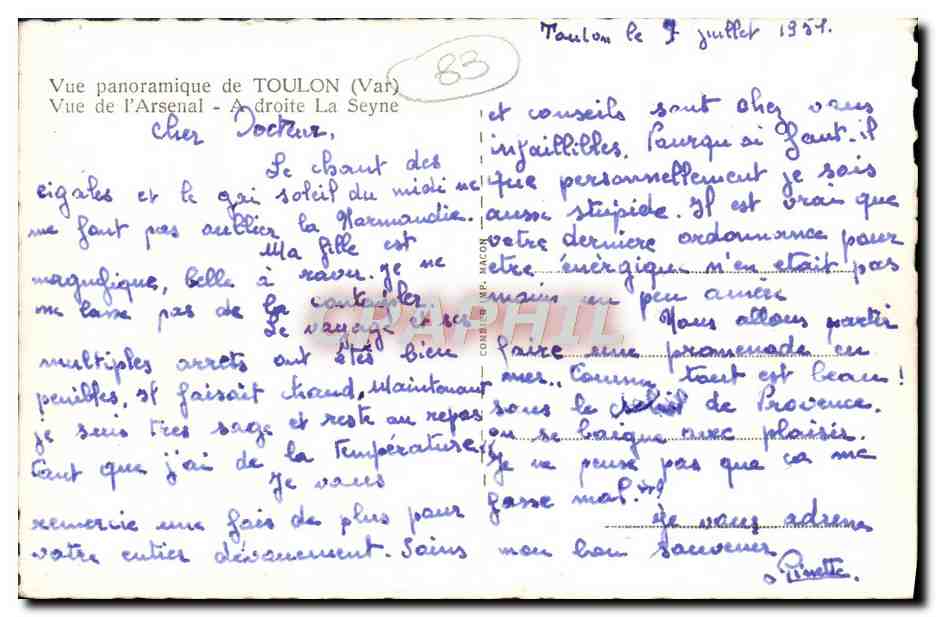 Toulon le 9 juillet 1951.
83
Vue panoramique de TOULON (Var)
Vue de l'Arsenal - A droite La Seyne
Cher Docteur,
Le chant des
cigales et le gai soleil du midi ne
me font pas oublier la Normandie.
Ma fille est
magnifique, belle à ravir. Je ne
me lasse pas de la contempler.
Le voyage et ses
multiples arrets ont étés bien
penibles, il faisait chaud, Maintenant
je suis très sage et reste au repos
tant que j'ai de la température.
Je vous
remercie une fois de plus pour
votre entier dévouement. Soins
et conseils sont chez vous
infaillibles. Pourquoi faut-il
que personnellement je sois
aussi stupide. Il est vrai que
votre dernière ordonnance pour
etre énergique n'en etait pas
moins un peu amère
Nous allons partir
faire une promenade en
mer.. Comme tout est beau!
sous le soleil de Provence.
on se baigne avec plaisir.
Je ne pense pas que ça me
fasse mal.
Je vous adresse
mon bon souvenir
Pinette.
COMBIER IMP. MACON
CPAPHIL